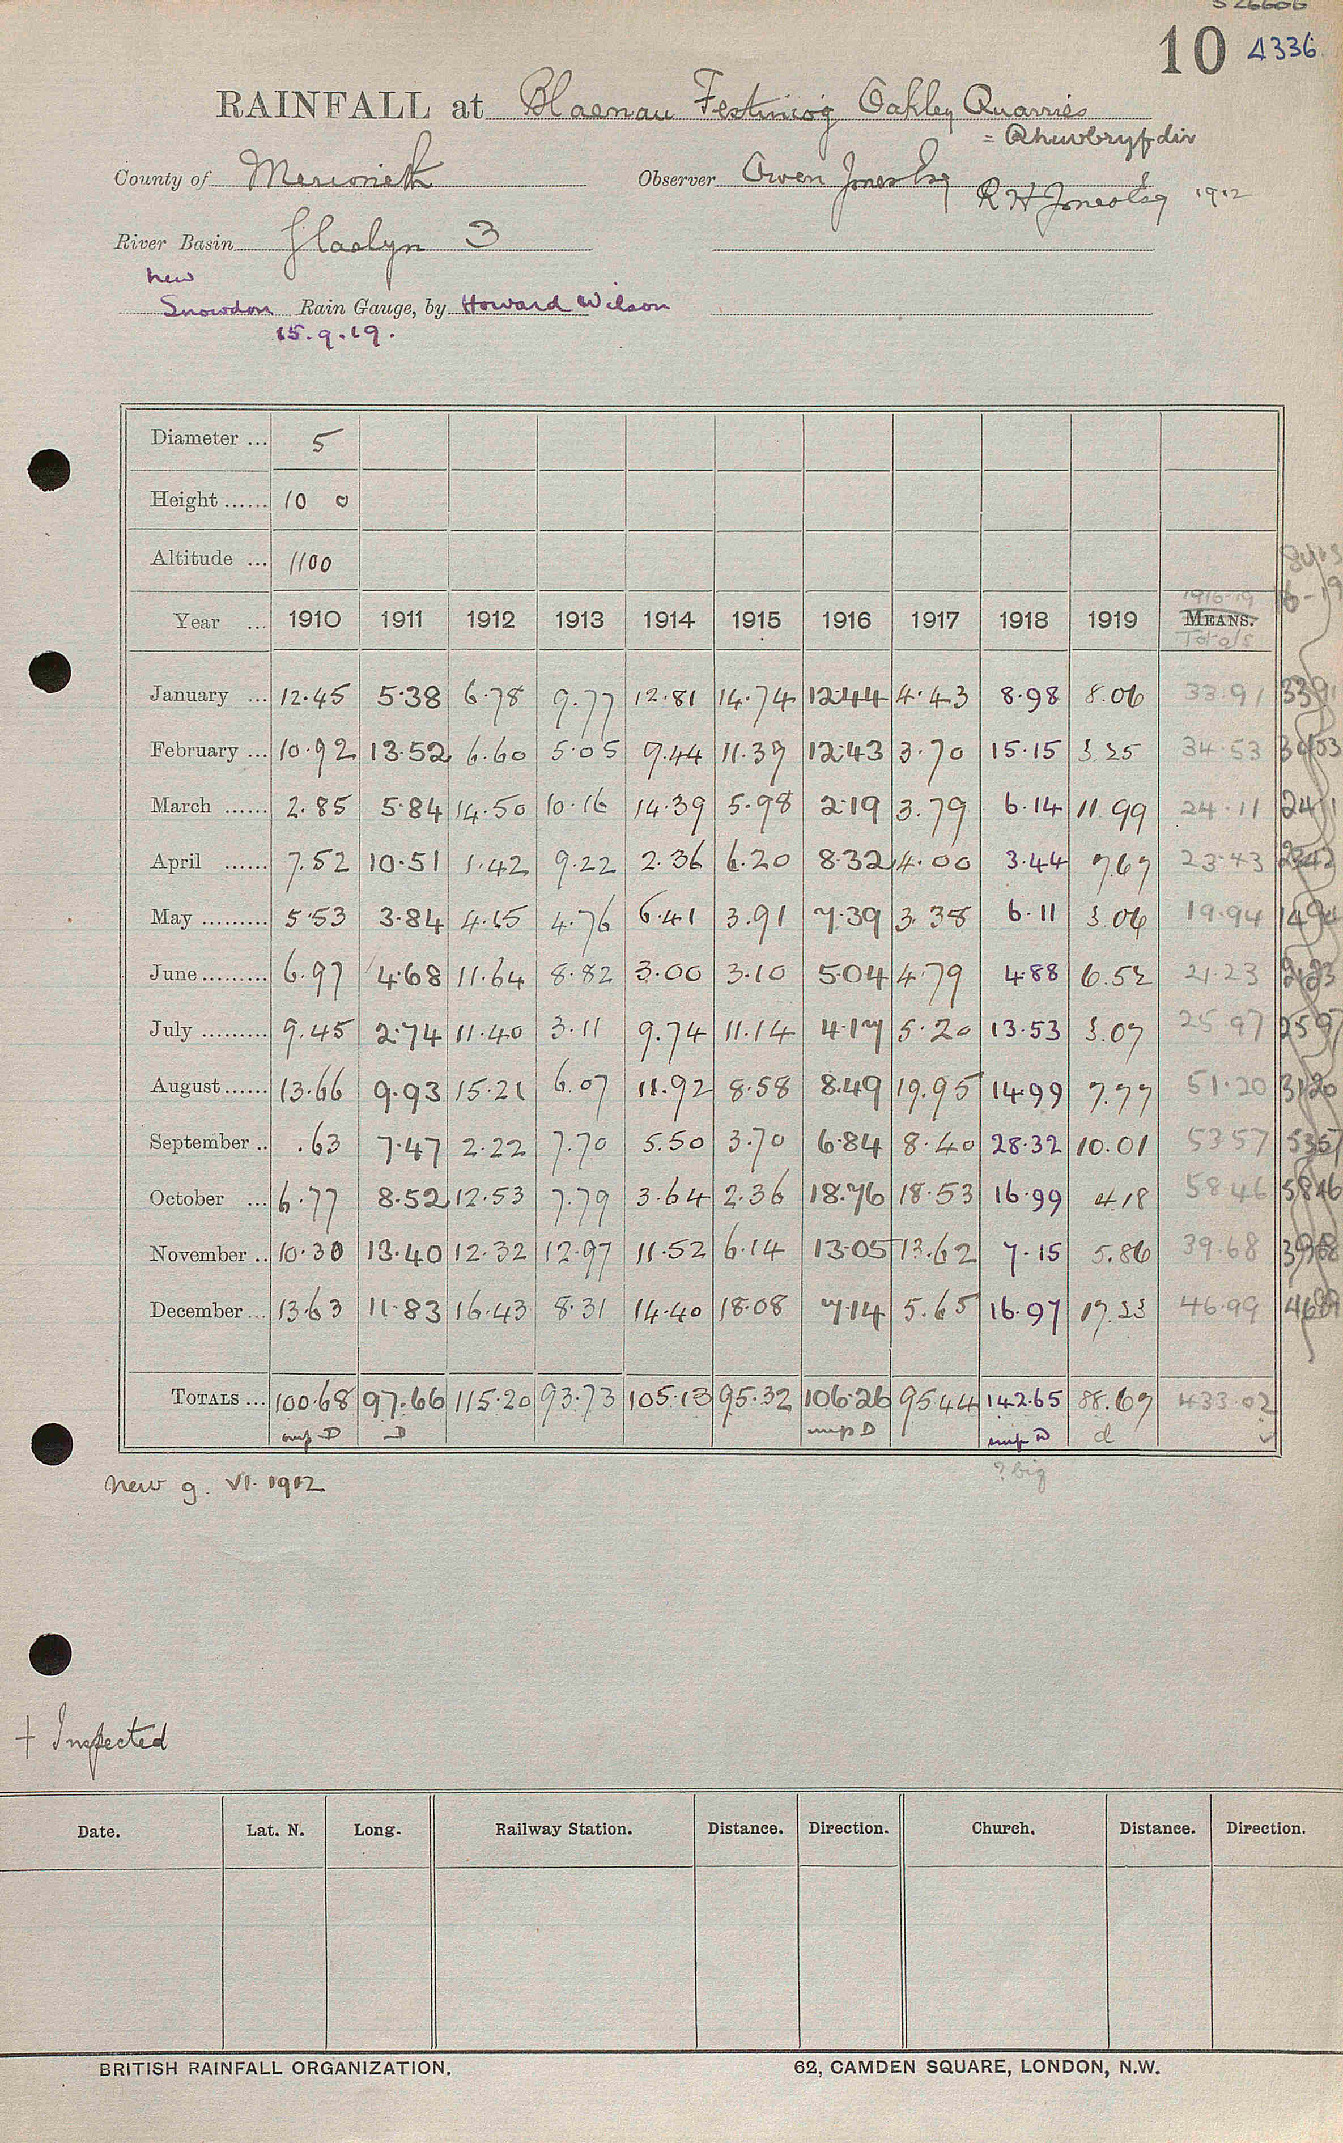 10 4336
RAINFALL at Blaenau Festiniog Oakley Quarries
= Rhiwbryfdir
County of Merioneth Observer Owen Jones Esq
R H Jones Esq 1912
River Basin Glaslyn 3
new
Snowdon Rain Gauge, by Howard Wilson
15.9.19.
Diameter ... 5
Height ...... 10 0
Altitude ... 1100
1916-19
Year ... 1910 1911 1912 1913 1914 1915 1916 1917 1918 1919 MEANS.
Totals
January ... 12.45 5.38 6.78 9.77 12.81 14.74 12.44 4.43 8.98 8.06 33.91 3391
February ... 10.92 13.52 6.60 5.05 9.44 11.39 12.43 3.70 15.15 3.25 34.53
March ...... 2.85 5.84 14.50 10.16 14.39 5.98 2.19 3.79 6.14 11.99 24.11 2411
April ...... 7.52 10.51 1.42 9.22 2.36 6.20 8.32 4.00 3.44 7.67 23.43
May ......... 5.53 3.84 4.15 4.76 6.41 3.91 7.39 3.38 6.11 3.06 19.94
June ......... 6.97 4.68 11.64 8.82 3.00 3.10 5.04 4.79 4.88 6.52 21.23 2123
July ......... 9.45 2.74 11.40 3.11 9.74 11.14 4.17 5.20 13.53 3.07 25.97 2597
August ...... 13.66 9.93 15.21 6.07 11.92 8.58 8.49 19.95 14.99 7.77 51.20
September .. .63 7.47 2.22 7.70 5.50 3.70 6.84 8.40 28.32 10.01 53.57 5357
October ... 6.77 8.52 12.53 7.79 3.64 2.36 18.76 18.53 16.99 4.18 58.46 5846
November .. 10.30 13.40 12.32 12.97 11.52 6.14 13.05 13.62 7.15 5.86 39.68 3968
December ... 13.63 11.83 16.43 8.31 14.40 18.08 7.14 5.65 16.97 17.23 46.99
TOTALS ... 100.68 97.66 115.20 93.73 105.13 95.32 106.26 95.44 142.65 88.67 433.02
D D D D d
? big
new g. VI. 1912
+ Inspected
Date. Lat. N. Long. Railway Station. Distance. Direction. Church. Distance. Direction.
BRITISH RAINFALL ORGANIZATION. 62, CAMDEN SQUARE, LONDON, N.W.